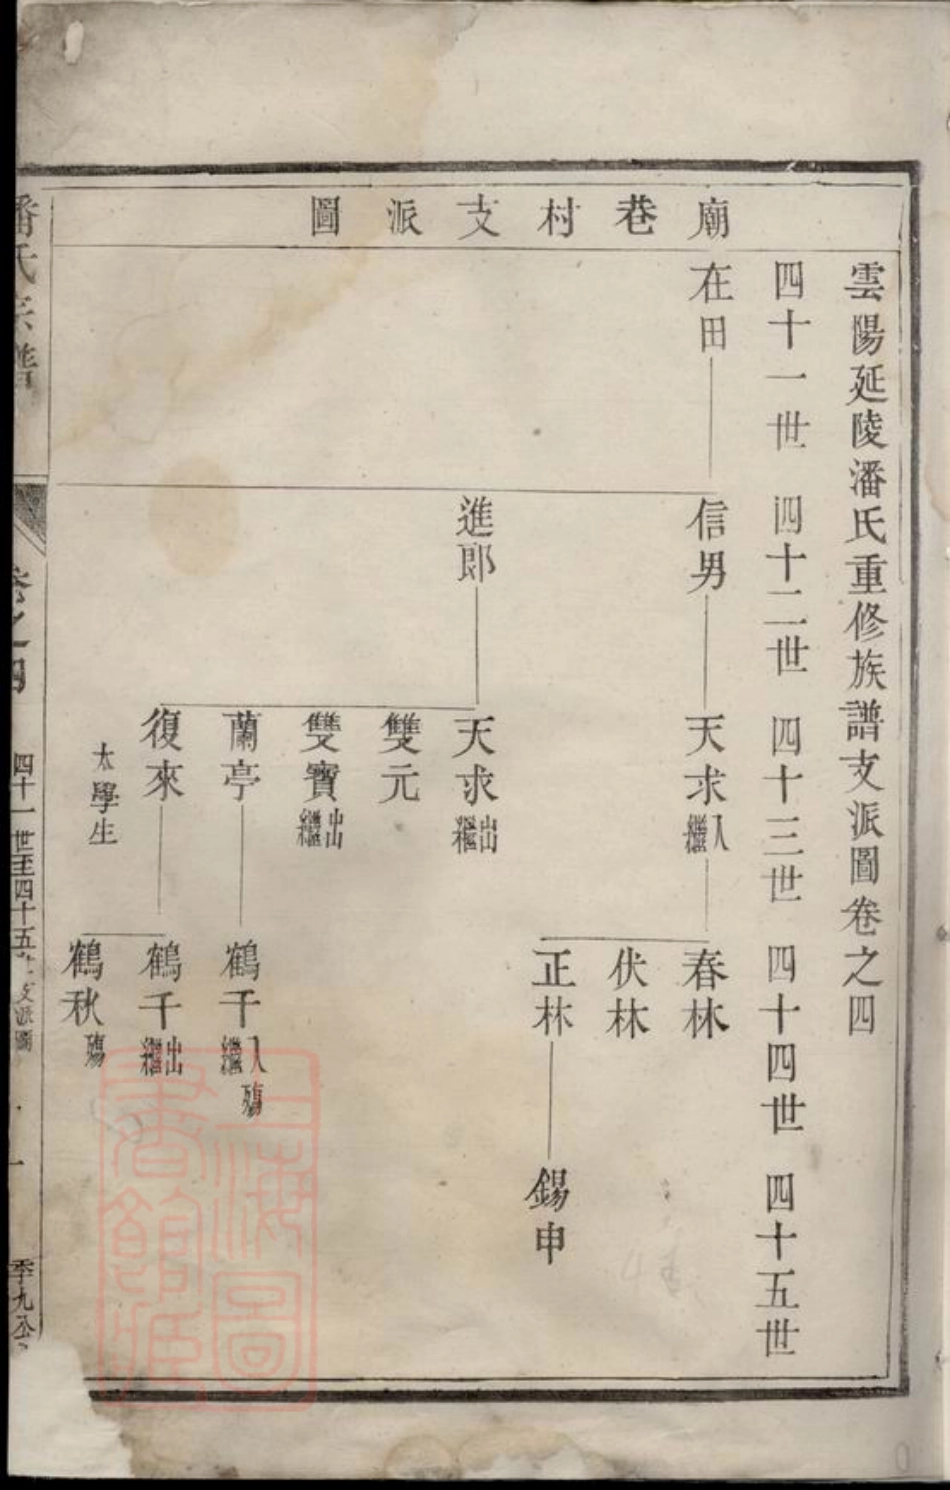 廟巷村支派圖
雲陽延陵潘氏重修族譜支派圖卷之四
四十一世 四十二世 四十三世 四十四世 四十五世
在田 信男 天求入繼 春林
伏林
正林 錫申
進郎 天求出繼
雙元
雙寶出繼
蘭亭 鶴千入繼殤
復來 鶴千出繼
太學生 鶴秋殤
潘氏宗譜
卷之四
四十一世至四十五世支派圖
一
季九公
上海圖
書館藏